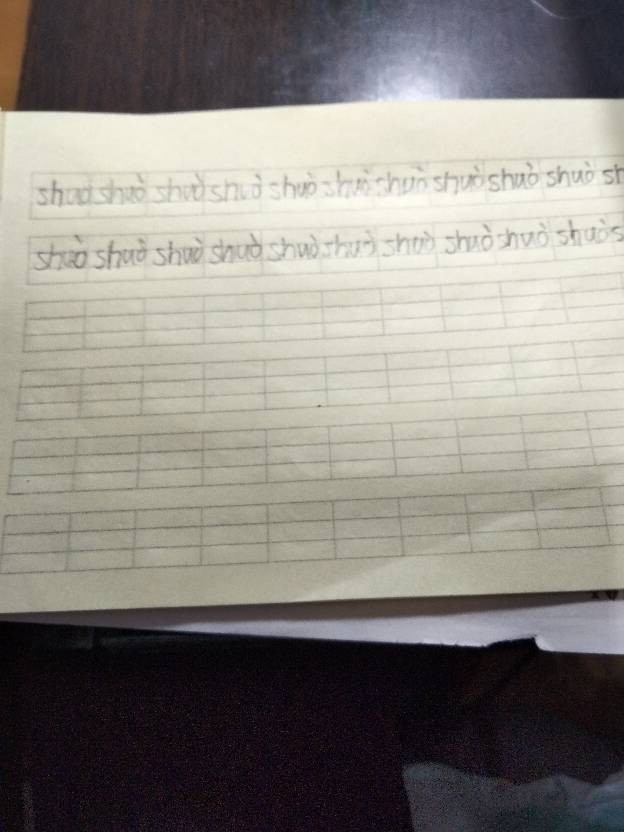 shuò shuò shuò shuò shuò shuò shuò shuò shuò shuò sh
shuò shuò shuò shuò shuò shuò shuò shuò shuò shuò s